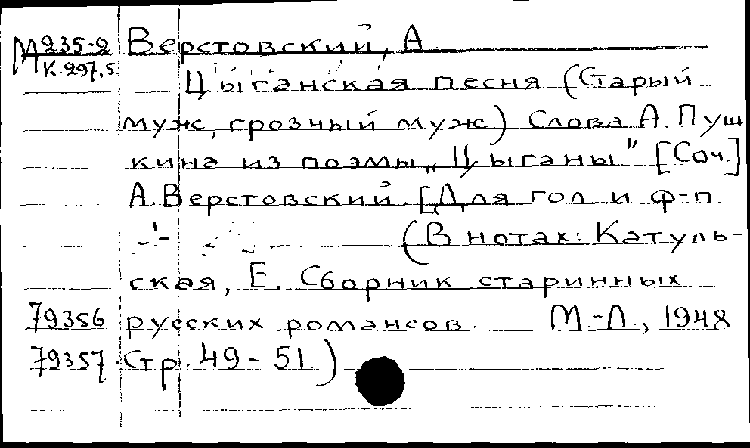 М 235-2 Верстовский, А
К.297,5 Цыганская песня (Старый
муж, грозный муж) Слова А. Пуш
кина из поэмы „Цыганы" [Соч.]
А. Верстовский. [Для гол и ф-п.
(В нотах: Катуль-
ская, Е. Сборник старинных
79356 русских романсов. М.-Л., 1948
79357 Стр. 49-51)